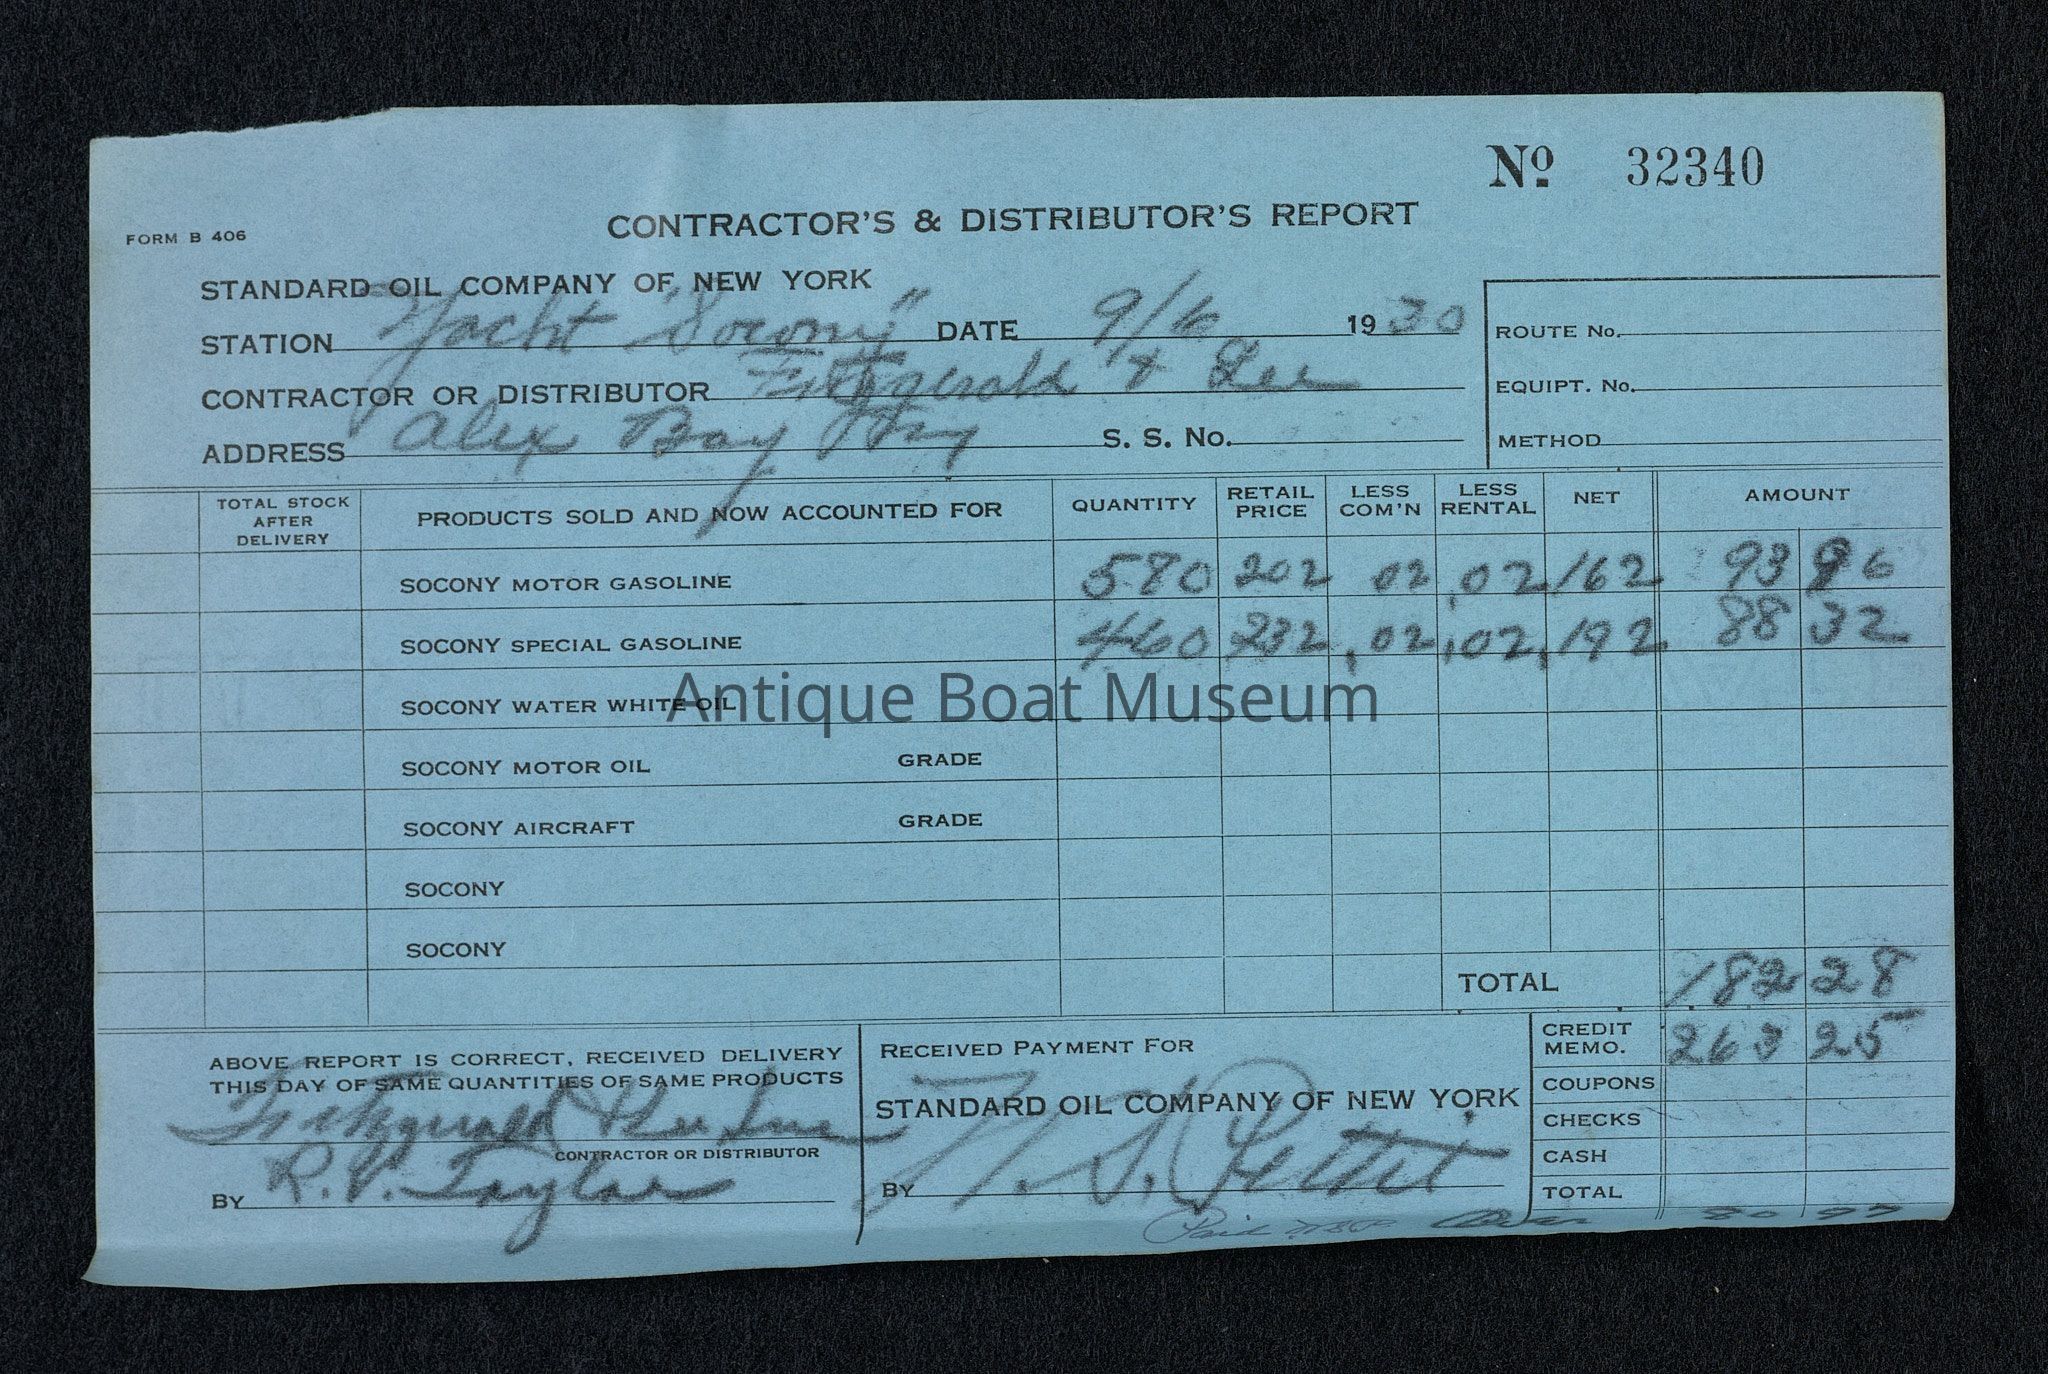 Nº 32340
FORM B 406
CONTRACTOR'S & DISTRIBUTOR'S REPORT
STANDARD OIL COMPANY OF NEW YORK
STATION Yacht "Socony" DATE 9/6 1930
CONTRACTOR OR DISTRIBUTOR Fitzgerald & Lee
ADDRESS Alex Bay NY S. S. No.
ROUTE No.
EQUIPT. No.
METHOD
TOTAL STOCK AFTER DELIVERY PRODUCTS SOLD AND NOW ACCOUNTED FOR QUANTITY RETAIL PRICE LESS COM'N LESS RENTAL NET AMOUNT
SOCONY MOTOR GASOLINE 580 202 02 .02 162 93 96
SOCONY SPECIAL GASOLINE 460 232 .02 .02 .192 88 32
SOCONY WATER WHITE OIL
Antique Boat Museum
SOCONY MOTOR OIL GRADE
SOCONY AIRCRAFT GRADE
SOCONY
SOCONY
TOTAL 182 28
CREDIT MEMO. 263 25
COUPONS
CHECKS
CASH
TOTAL
ABOVE REPORT IS CORRECT, RECEIVED DELIVERY
THIS DAY OF SAME QUANTITIES OF SAME PRODUCTS
Fitzgerald
CONTRACTOR OR DISTRIBUTOR
BY R. P. Taylor
RECEIVED PAYMENT FOR
STANDARD OIL COMPANY OF NEW YORK
BY S. Pettit
Paid